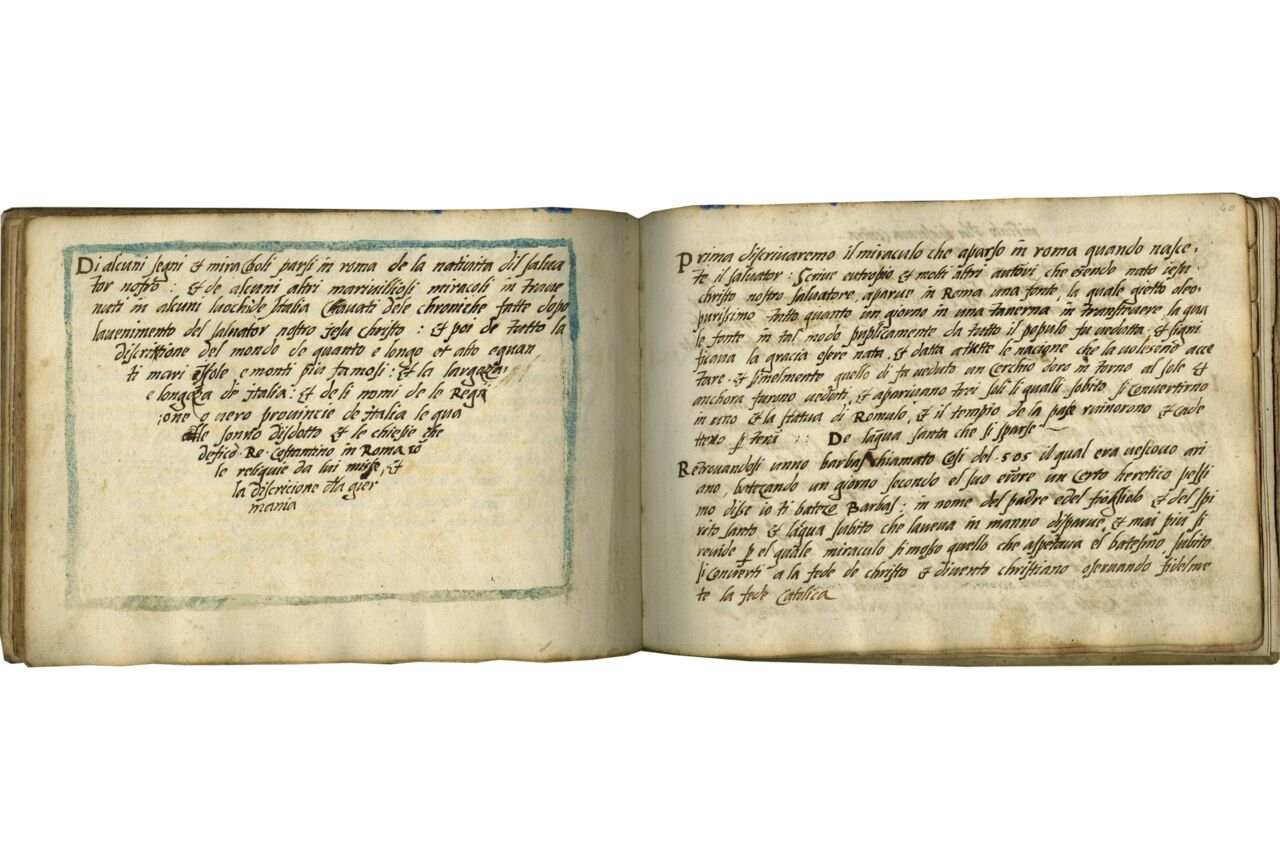 Di alcuni segni et miracholi parsi in roma de la nativita dil salva
tor nostro : et de alcuni altri maravilliosi miracoli in trave
nuti in alcuni luochi de Italia Chavati dele chroniche fatte dopo
lavenimento del salvator nostro Jesu christo : et poi de tutto la
discrittione del mondo de quanto e longo et alto equan
ti mari isole e monti piu famosi : et la largeza
e longeza de italia : et de li nomi de le Regi
one e vero provincie de italia le qua
le sonno disdotto et le chiese che
defico Re Costantino in Roma co
le reliquie da lui misse, et
la discricione dla gier
mania
40
Prima discrivaremo il miraculo che aparso in roma quando nasce
te il salvator : Scrive eutropio et molti altri autori, che esendo nato iesu
christo nostro salvatore, aparve in Roma una fonte, la quale gietto oleo
purissimo tutto quanto un giorno in una taverna in transtivere la qua
le fonte in tal modo puplicamente da tutto il populo fu vedotta, et signi
ficava la gracia esere nata, et datta a tutte le nacione che la volisene acce
tare, et simelmente quello di fu veduto un Cerchio doro in torno al sole et
anchora furono veduti, et aparivano trei soli li qualli subito si Convertirno
in uno et la statua di Romulo, et il tempio de la pase ruinorono et Cade
tteno p tera : De laqua santa che si sparse
Retrovandosi unno barbas chiamato Cosi del .505 il qual era vescovo ari
ano, batezando un giorno secondo el suo erore un Certo heretico pessi
mo dise io ti bateze Barbas : in nome del padre e del fiogliolo et del spi
rito santo et laqua subito che laveva in manno disparve, et mai piu si
revide p el quale miraculo si mosso quello che aspetava el batesmo subito
si Converti a la fede de christo et divento christiano oservando fidelme
te la fede Catolica